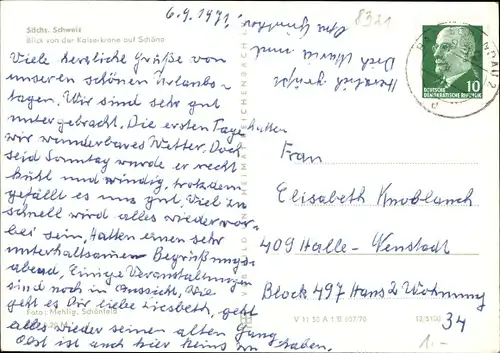 Sächs. Schweiz
Blick von der Kaiserkrone auf Schöna
6.9.1971.
Viele herzliche Grüße von
unseren schönen Urlaubs-
tagen. Wir sind sehr gut
untergebracht. Die ersten Tage hatten
wir wunderbares Wetter. Doch
seid Sonntag wurde er recht
kühl und windig, trotzdem
gefällt es uns gut. Viel zu
schnell wird alles wieder vor-
bei sein. Hatten einen sehr
unterhaltsamen Begrüßungs-
abend. Einige Veranstaltungen
sind noch in Aussicht. Wie
geht es Dir liebe Liesbeth, geht
alles wieder seinen alten Gang
Obst ist auch hier keins zu haben.
Herzlich grüßt
Dich Maria und
8321
DEUTSCHE
DEMOKRATISCHE REPUBLIK
10
Frau
Elisabeth Knoblauch
409 Halle-Neustadt
Block 497 Haus 2 Wohnung
34
Foto: Mehlig, Schönfeld
V 11 50 A 1 B 657/70
12/5120
1.-